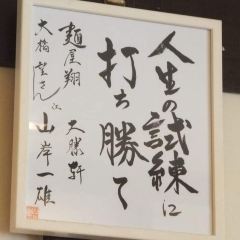 人生の試練に
打ち勝て
麺屋翔
大勝軒
大橋望さん江
山岸一雄